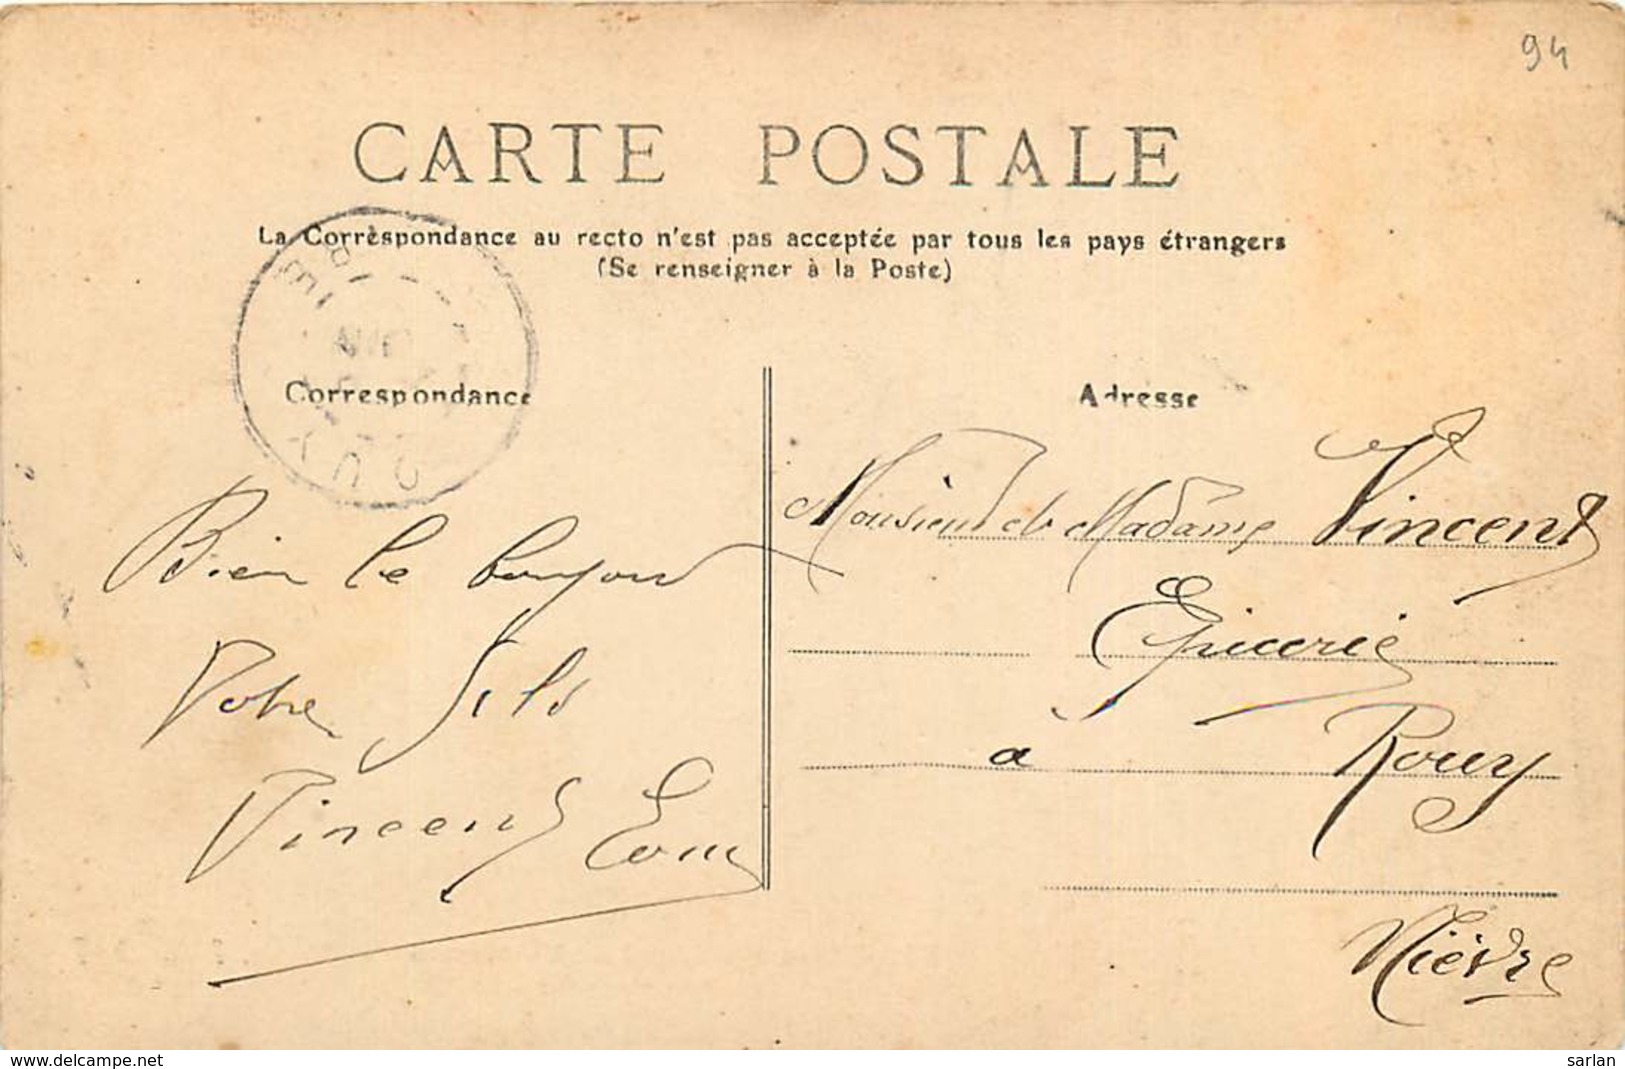 94
CARTE POSTALE
La Corrèspondance au recto n'est pas acceptée par tous les pays étrangers
(Se renseigner à la Poste)
Correspondance
Bien le bonjour
Votre fils
Vincent
Adresse
Monsieur et Madame Vincent
Epicerie
a Rouy
Nièvre
www.delcampe.net
sarlan